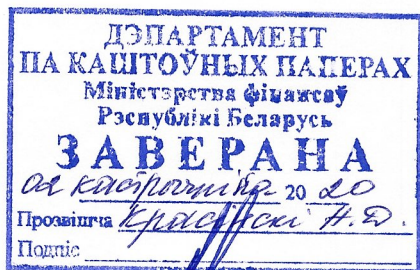 ДЭПАРТАМЕНТ
ПА КАШТОЎНЫХ ПАПЕРАХ
Міністэрства фінансаў
Рэспублікі Беларусь
ЗАВЕРАНА
02 кастрычніка 20 20
Прозвішча Красінскі
Подпіс